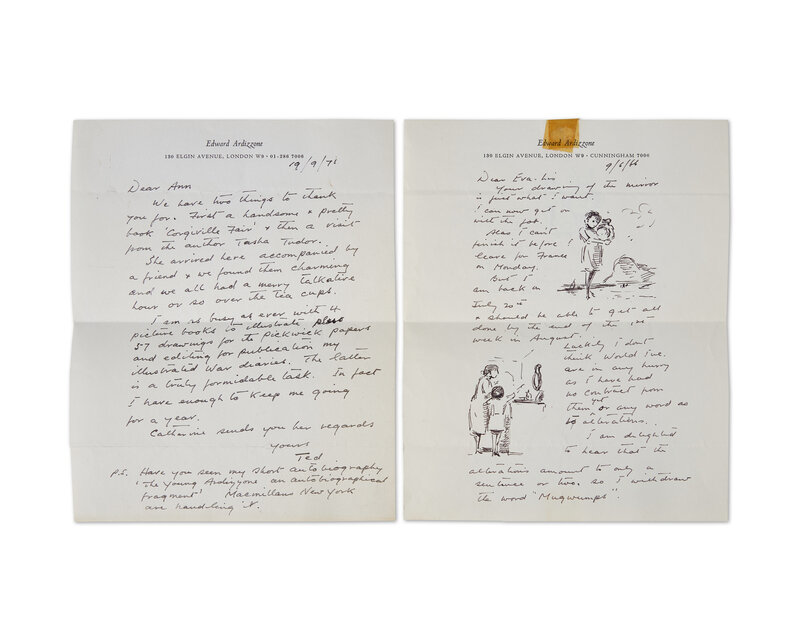 Edward Ardizzone
130 ELGIN AVENUE, LONDON W9 · 01-286 7006
19/9/71
Dear Ann
We have two things to thank
you for. First a handsome & pretty
book 'Corgiville Fair' & then a visit
from the author Tasha Tudor.
She arrived here accompanied by
a friend & we found them charming
and we all had a merry talkative
hour or so over the tea cups.
I am as busy as ever with 4
picture books to illustrate plus
57 drawings for the Pickwick papers
and editing for publication my
illustrated War diaries. The latter
is a truly formidable task. In fact
I have enough to keep me going
for a year.
Catherine sends you her regards
Yours
Ted
P.S. Have you seen my short autobiography
'The Young Ardizzone an autobiographical
fragment' Macmillans New York
are handling it.
Edward Ardizzone
130 ELGIN AVENUE, LONDON W9 · CUNNINGHAM 7006
9/6/66
Dear Eva-Lis
Your drawing of the mirror
is just what I want.
I can now get on
with the job.
Alas I can't
finish it before I
leave for France
on Monday.
But I
am back on
July 20th
& should be able to get all
done by the end of the 1st
week in August.
Luckily I don't
think World Pub.
are in any hurry
as I have had
no contract from
them yet or any word as
to alterations.
I am delighted
to hear that the
alterations amount to only a
sentence or two. So I withdraw
the word 'Mugwumps'.